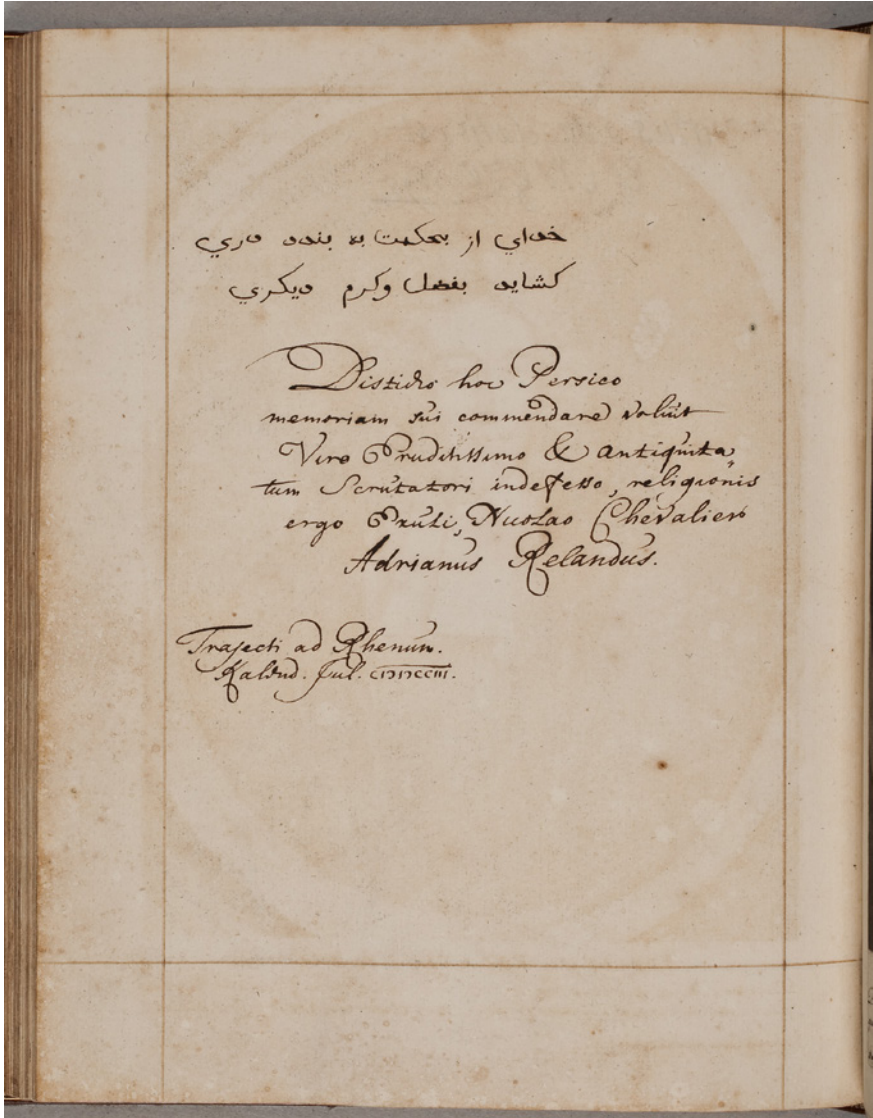 خداي از بحكمت به بندد دري
كشايد بفضل وكرم ديكري
Disticho hoc Persico
memoriam sui commendare voluit
Viro Eruditissimo & antiquita„
tum Scrutatori indefesso, religionis
ergo Exuli, Nicolao Chevalier
Adrianus Relandus.
Trajecti ad Rhenum.
Kalend. Jul. CIƆIƆCCIII.